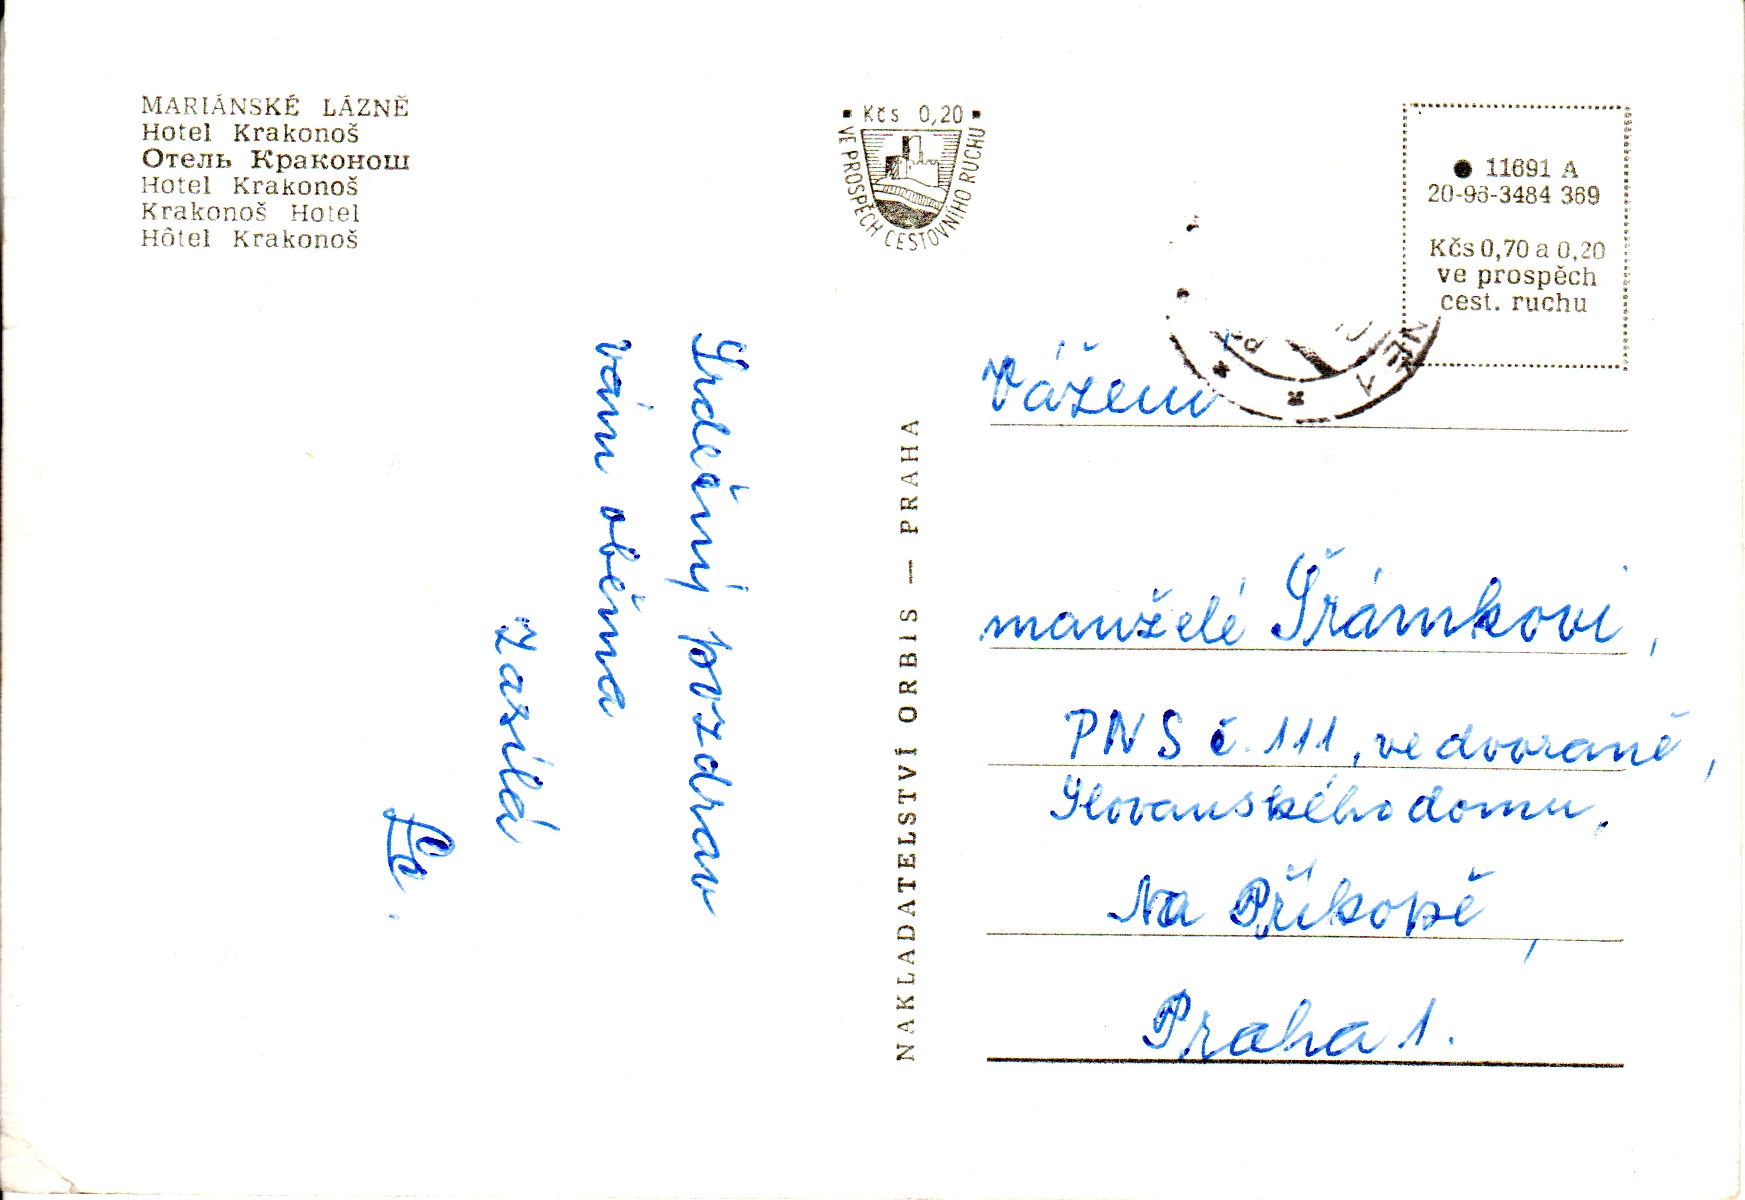 MARIÁNSKÉ LÁZNĚ
Hotel Krakonoš
Отель Краконош
Hotel Krakonoš
Krakonoš Hotel
Hôtel Krakonoš
Kčs 0,20
VE PROSPĚCH CESTOVNÍHO RUCHU
11691 A
20-96-3484 369
Kčs 0,70 a 0,20
ve prospěch
cest. ruchu
Srdečný pozdrav
vám oběma
zasílá
NAKLADATELSTVÍ ORBIS — PRAHA
Vážení
manželé Šrámkovi,
PNS č. 111, ve dvoraně,
Slovanského domu,
Na Příkopě,
Praha 1.